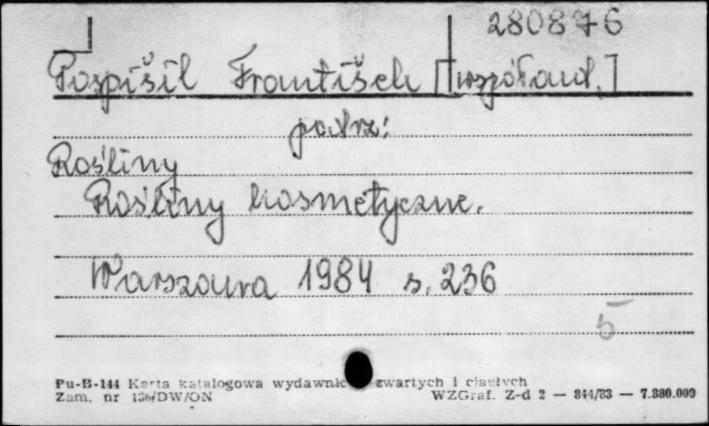 280876
Pospíšil František [współaut.]
patrz:
Rośliny
Rośliny kosmetyczne.
Warszawa 1984 s. 236
5
Pu-B-144 Karta katalogowa wydawnic zwartych i ciągłych
Zam. nr 136/DW/ON WZGraf. Z-d 2 — 844/83 — 7.880.000